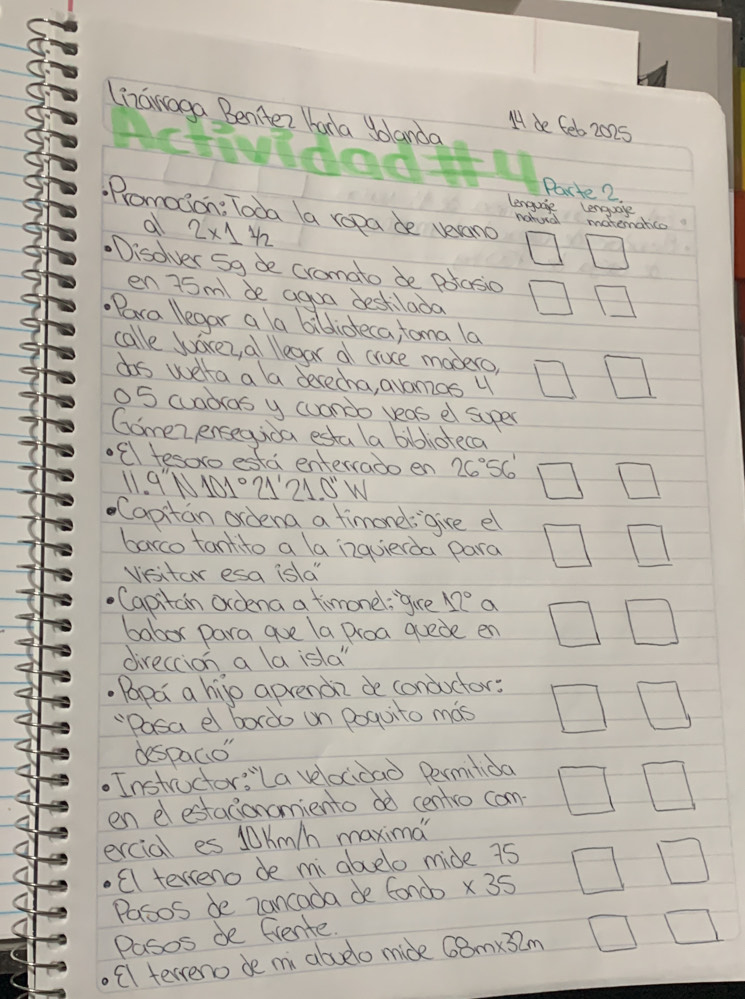 Lizárraga Benítez Karla Yolanda
14 de feb 2025
Actividad #4
Parte 2.
Lenguaje natural
Lenguaje matematico
• Promoción: Toda la ropa de verano
al 2x1 ½
• Disolver 5g de cromato de Potasio
en 75ml de agua destilada
• Para llegar a la biblioteca, toma la
calle Juárez, al llegar al cruce madero,
das vuelta a la derecha, avanzas 4
o 5 cuadras y cuando veas el super
Gómez, enseguida esta la biblioteca
• El tesoro está enterrado en 26°56'
11.9"N 101°21'21.0"W
• Capitán ordena a timonel: "gire el
barco tantito a la izquierda para
visitar esa isla"
• Capitán ordena a timonel: "gire 12° a
babor para que la proa quede en
dirección a la isla"
• Papá a hijo aprendiz de conductor:
"Pasa el bordo un poquito más
despacio"
• Instructor: "La velocidad Permitida
en el estacionamiento del centro com-
ercial es 10km/h maxima"
• El terreno de mi abuelo mide 75
Pasos de zancada de fondo x 35
Pasos de frente.
• El terreno de mi abuelo mide 68mx32m